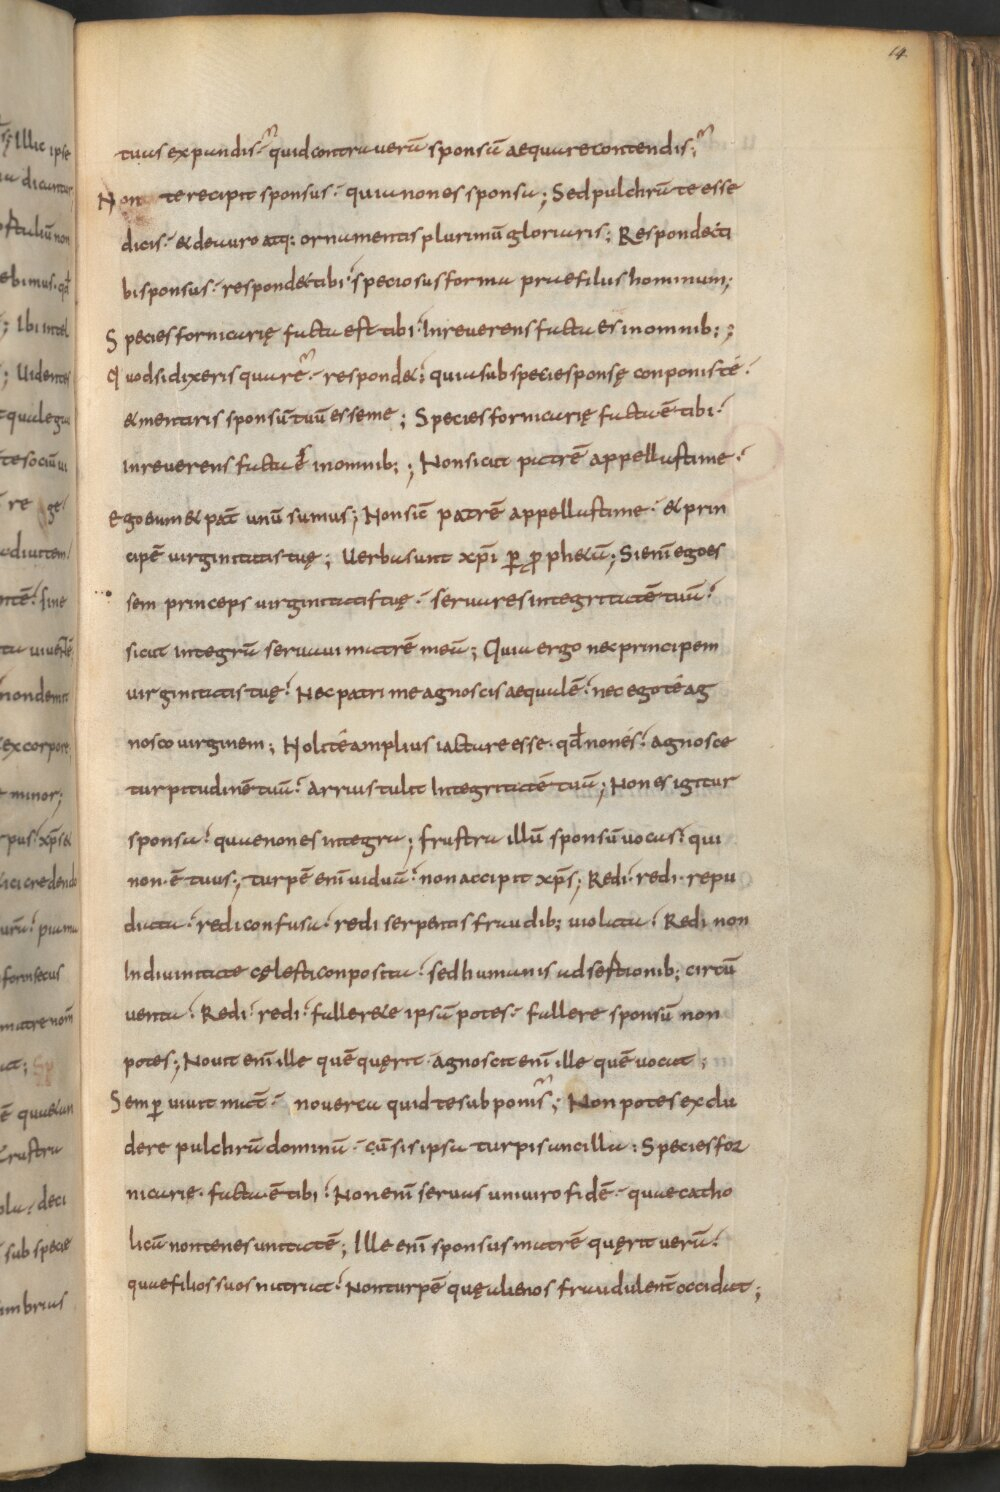 14
tuas expandis? quid contra verū sponsū aequare contendis?
Non te recipit sponsus· quia non es sponsa; Sed pulchrū te esse
dicis· & de auro atq: ornamentis plurimū gloriaris; Respond& ti
bi sponsus· respond& tibi· speciosus forma prae filiis hominum;
Species fornicarię facta est tibi· Inreverens facta es in omnib:;
Quod si dixeris quare?· respond&· quia sub specie sponsę conponis té·
& mentiris sponsū tuū esse me; Species fornicarię facta ē tibi·
inreverens facta ēs in omnib:; Non sicut patrē appellasti me·
Ego enim & pat̄ unū sumus; Non sic̄ patrē appellasti me· & prin
cipē virginitatis tuę; Verba sunt xp̄i per proph&ā; Si enī ego es
sem princeps virginitatis tuę· servares integritatē tuā·
sicut integrū servavi matrē meā; Quia ergo nec principem
virginitatis tuę· Nec patri me agnoscis aequalē· nec ego té ag
nosco virginem; Noli té amplius iactare esse· qd̄ non és· agnosce
turpitudinē tuā· Arrius tulit Integritatē tuā; Non es igitur
sponsa· quae non es integra; frustra illū sponsū vocas· qui
non·ē tuus; turpē enī viduā· non accipit xp̄s; Redi· redi· repu
diata· redi confusa· redi serpentis fraudib: violata· Redi non
In divinitate cęlesti conposita· sed humanis adsertionib: circū
venta· Redi· redi· fallere te ipsā potes· fallere sponsū non
potes; Novit enī ille quē quęrit· agnoscit enī ille quē vocat;
Semper vivit mat̄· noverca quid te subponis?; Non potes exclu
dere pulchrū dominū· cū sis ipsa turpis ancilla; Species for
nicarię· facta ē tibi· Non enī servas uni viro fidē· quae catho
licā non tenes unitatē; Ille enī sponsus matrē quęrit verā·
quae filios suos nutriat· Non turpē quę alienos fraudulent̄ occidat;